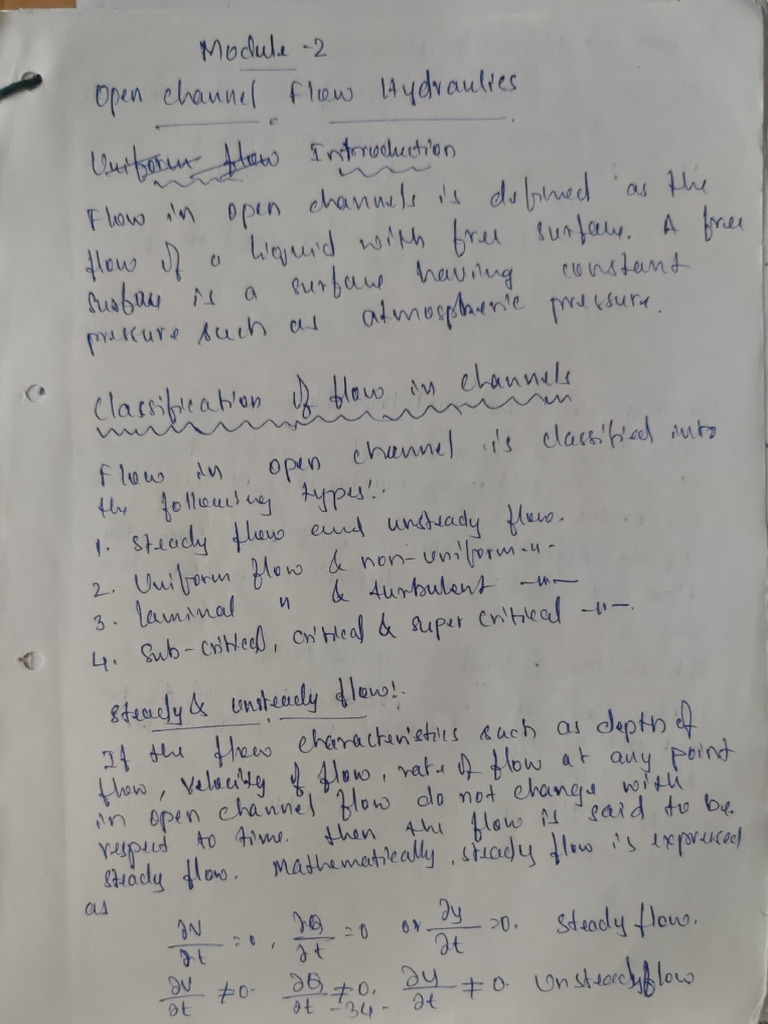 Module - 2
Open channel Flow Hydraulics
Uniform flow Introduction
Flow in open channels is defined as the
flow of a liquid with free surface. A free
surface is a surface having constant
pressure such as atmospheric pressure.
Classification of flow in channels
Flow in open channel is classified into
the following types:.
1. Steady flow and unsteady flow.
2. Uniform flow & non-uniform -〃-
3. Laminal 〃 & turbulent -〃-
4. Sub-critical, critical & super critical -〃-.
Steady & unsteady flow:.
If the flow characteristics such as depth of
flow, velocity of flow, rate of flow at any point
in open channel flow do not change with
respect to time. then the flow is said to be
steady flow. Mathematically, steady flow is expressed
as
∂V/∂t = 0, ∂Q/∂t = 0 or ∂y/∂t = 0. Steady flow.
∂V/∂t ≠ 0. ∂Q/∂t ≠ 0, ∂y/∂t ≠ 0. Unsteady flow
-34-